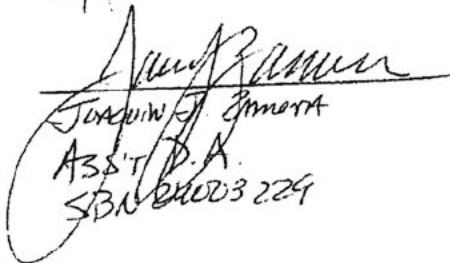 Joaquin J. Zamora
Ass't D.A.
SBN 24003229